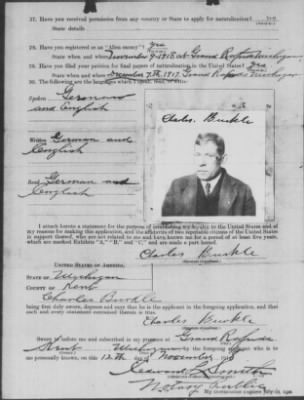 27. Have you received permission from any country or State to apply for naturalization?
State details
28. Have you registered as an "Alien enemy"? Yes
State when and where November 9 1918 at Grand Rapids Michigan
29. Have you filed your petition for final papers of naturalization in the United States? Yes
State when and where December 7th 1917 Grand Rapids Michigan
30. The languages which I speak, read or write
Spoken German
and English
Written German and
English
Read German and
English
Chas. Bunkle
I attach hereto a statement for the purpose of establishing my loyalty to the United States and of
my reasons for making this application, and the affidavits of two reputable citizens of the United States
in support thereof, who are not related to me and have known me for a period of at least five years,
which are marked Exhibits "A," "B," and "C," and are made a part hereof.
Charles Bunkle
UNITED STATES OF AMERICA,
STATE OF Michigan
COUNTY OF Kent
Charles Bunkle
being first duly sworn, deposes and says that he is the applicant in the foregoing application, and that
each and every statement contained therein is true.
Charles Bunkle
Sworn to before me and subscribed in my presence at Grand Rapids
Kent Michigan by the foregoing who is to
me personally known, on this 12th day November
Notary Public
My commission expires July